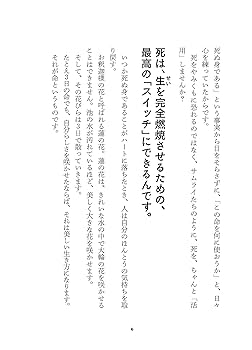 死ぬ身である」という事実から目をそらさずに、「この命を何に使おうか」と、日々
心を練っていたからです。
死をやみくもに恐れるのではなく、サムライたちのように、死を、ちゃんと「活
用」しませんか？
死は、生を完全燃焼させるための、
最高の「スイッチ」にできるんです。
いつか死ぬ身であることがハートに落ちたとき、人は自分のほんとうの気持ちを取
り戻す。
お釈迦様の花と呼ばれる蓮の花。蓮の花は、きれいな水の中で大輪の花を咲かせる
ことはできません。池の水が汚れているほど、美しく大きな花を咲かせます。
そして、その花びらは3日で散っていきます。
たとえ3日の命でも、自分らしさを咲かせたならば、それは美しい生き方になります。
それが命というものです。